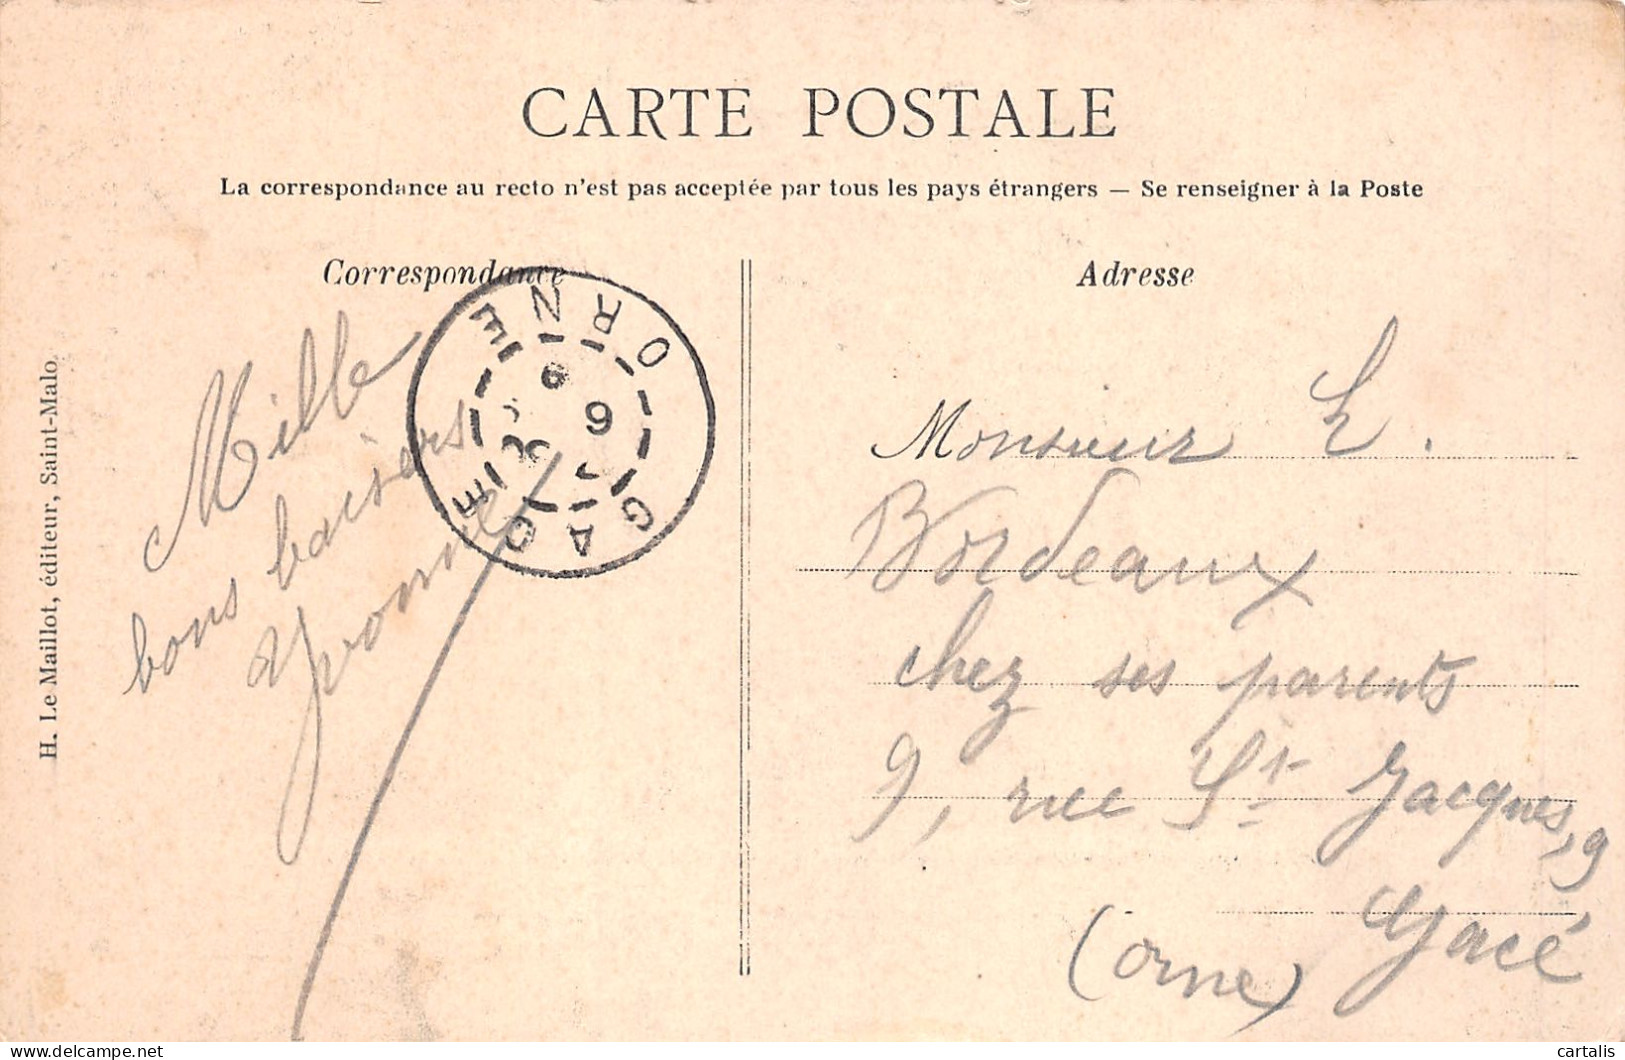 CARTE POSTALE
La correspondance au recto n'est pas acceptée par tous les pays étrangers — Se renseigner à la Poste
Correspondance
Mille
bons baisers
Yvonne
GACE
ORNE
H. Le Maillot, éditeur, Saint-Malo
Adresse
Monsieur
Bordeaux
chez ses parents
9, rue St Jacques, 9
Gacé
(Orne)
delcampe.net
cartalis